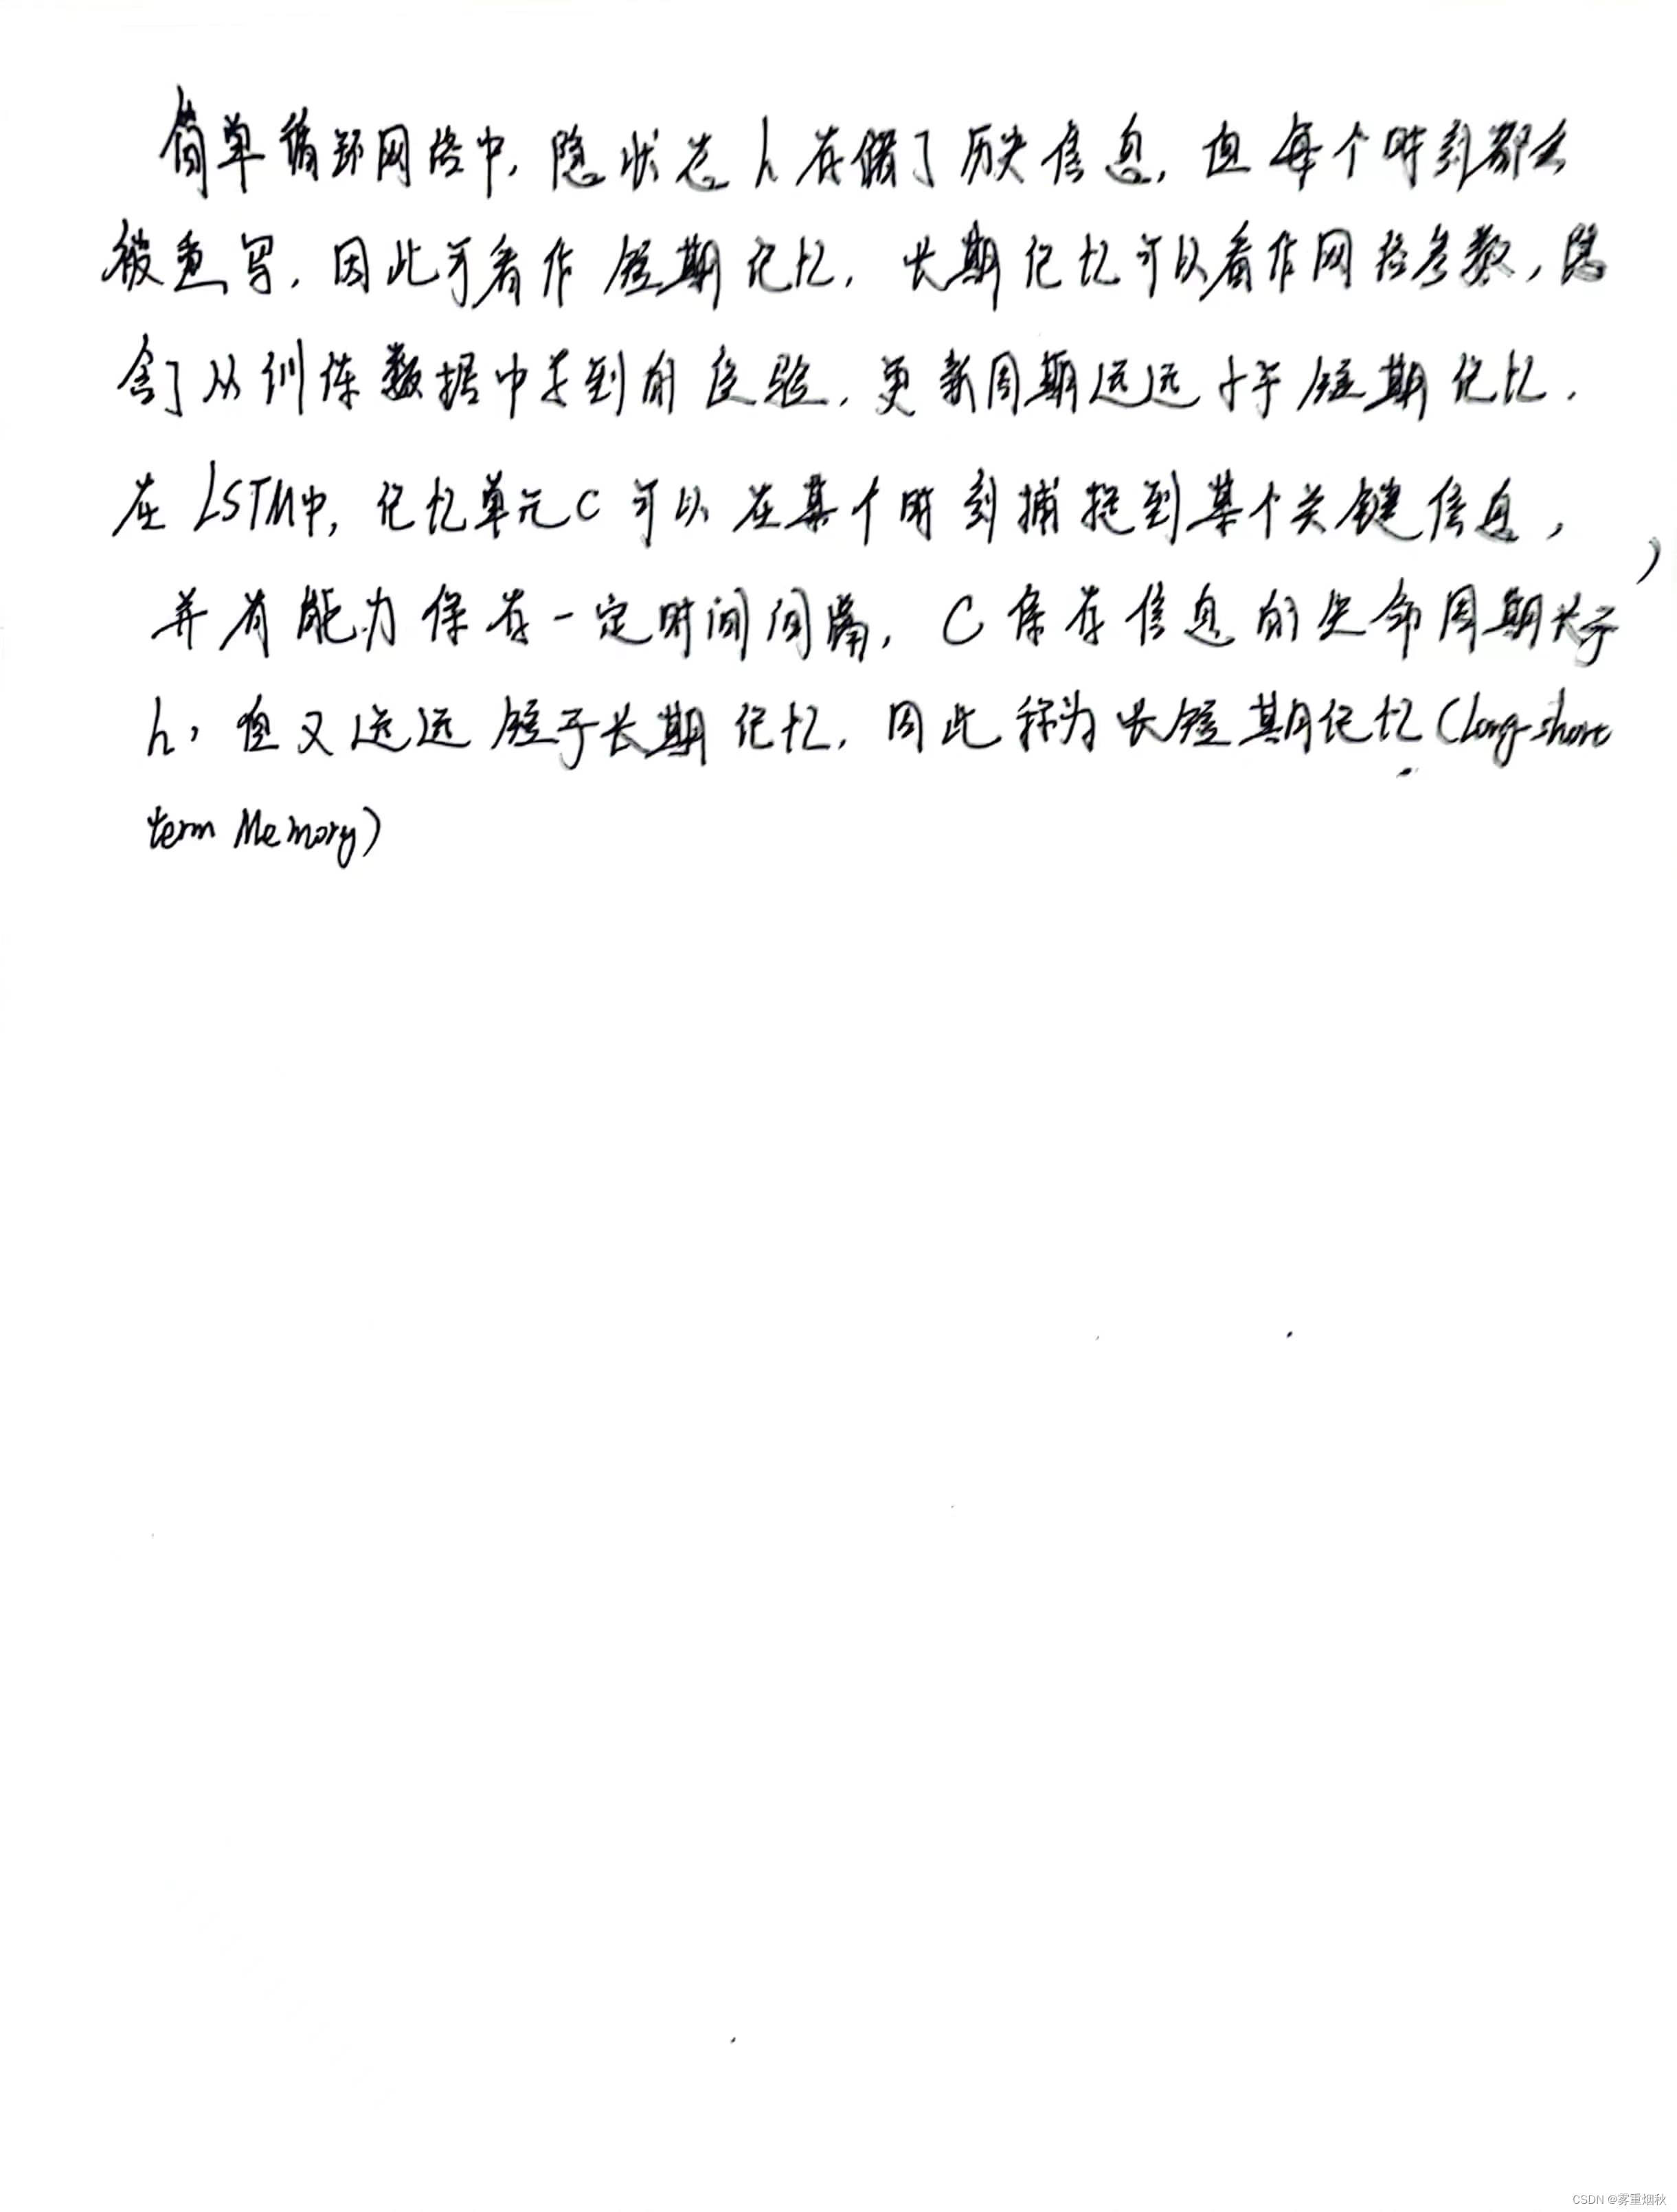 简单循环网络中，隐状态h存储了历史信息，但每个时刻都会
被重写，因此可看作短期记忆，长期记忆可以看作网络参数，隐
含了从训练数据中学到的经验，更新周期远远小于短期记忆．
在LSTM中，记忆单元C可以在某个时刻捕捉到某个关键信息，
并有能力保存一定时间间隔，C保存信息的生命周期长于
h，但又远远短于长期记忆，因此称为长短期记忆(Long-short
term Memory)
CSDN @雾重烟秋